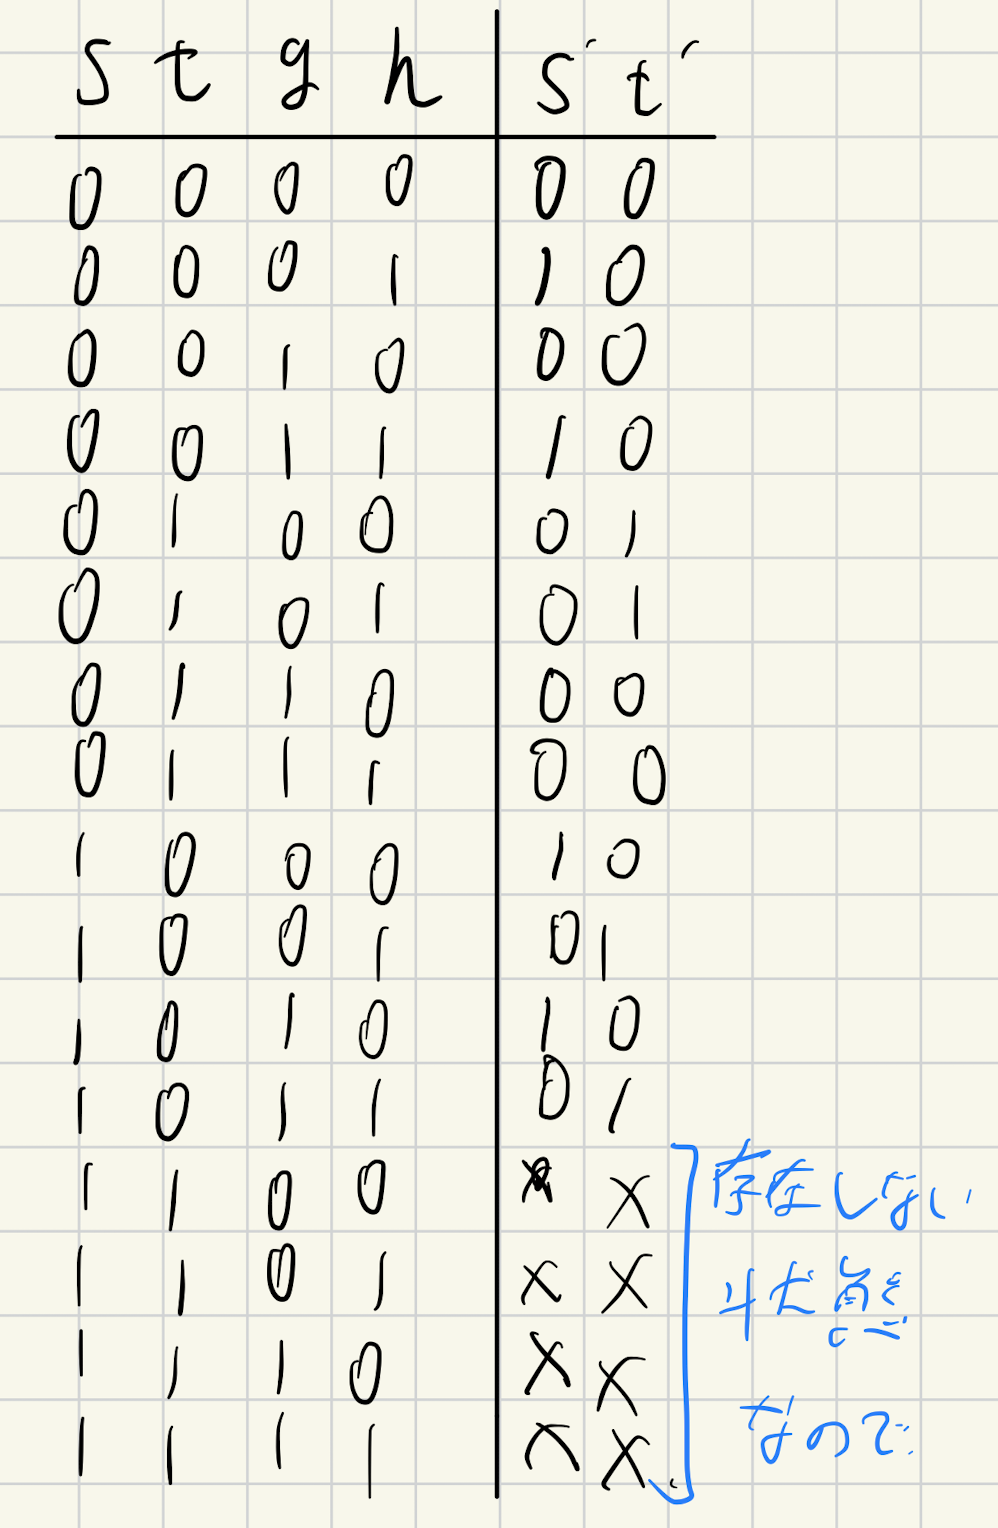 s t g h s' t'
0 0 0 0 0 0
0 0 0 1 1 0
0 0 1 0 0 0
0 0 1 1 1 0
0 1 0 0 0 1
0 1 0 1 0 1
0 1 1 0 0 0
0 1 1 1 0 0
1 0 0 0 1 0
1 0 0 1 0 1
1 0 1 0 1 0
1 0 1 1 0 1
1 1 0 0 x x
存在しない
1 1 0 1 x x
状態
1 1 1 0 x x
なので
1 1 1 1 x x